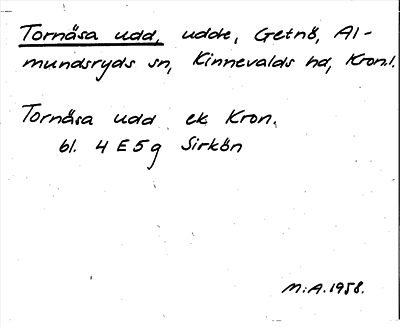 Tornåsa udd, udde, Getnö, Al-
mundsryds sn, Kinnevalds hd, Kron.l.
Tornåsa udd ek Kron.
bl. 4 E 5 g Sirkön
M:A. 1958.